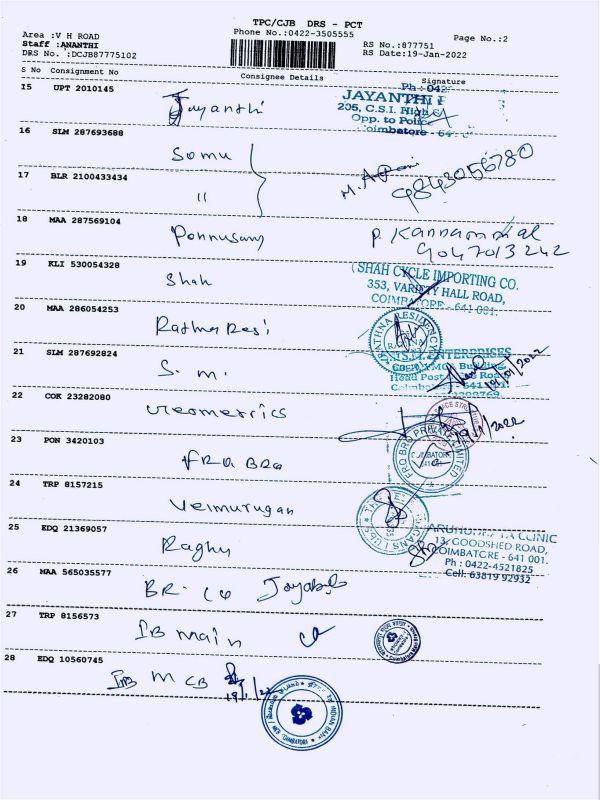 TPC/CJB DRS - PCT
Area :V H ROAD
Phone No.:0422-3505555
Page No.:2
Staff :ANANTHI
RS No.:877751
DRS No. :DCJB87775102
RS Date:19-Jan-2022
S No Consignment No Consignee Details Signature
15 UPT 2010145 Jayanthi
Ph: 042
JAYANTHI
205, C.S.I. High S
Opp. to Police
Coimbatore - 64
16 SLM 287693688 Somu
17 BLR 2100433434 "
9843056780
18 MAA 287569104 Ponnusamy P. Kannammal
9047013242
19 KLI 530054328 Shah
SHAH CYCLE IMPORTING CO.
353, VARIETY HALL ROAD,
COIMBATORE - 641 001.
20 MAA 286054253 Rathna Resi
21 SLM 287692824 S. M.
ENTERPRISES
Building
Head Post Road
19/01/2022
22 COK 23282080
19/1/2022
23 PON 3420103 FRO BRO
FRO BRO PRIVATE LIMITED
COIMBATORE
24 TRP 8157215 Velmurugan
25 EDQ 21369057 Raghu
CLINIC
13, GOODSHED ROAD,
COIMBATORE - 641 001.
Ph : 0422-4521825
Cell: 63819 92932
26 MAA 565035577 BR-
27 TRP 8156573 IB Main
28 EDQ 10560745 M CB
19/1/22
INDIAN BANK
COIMBATORE